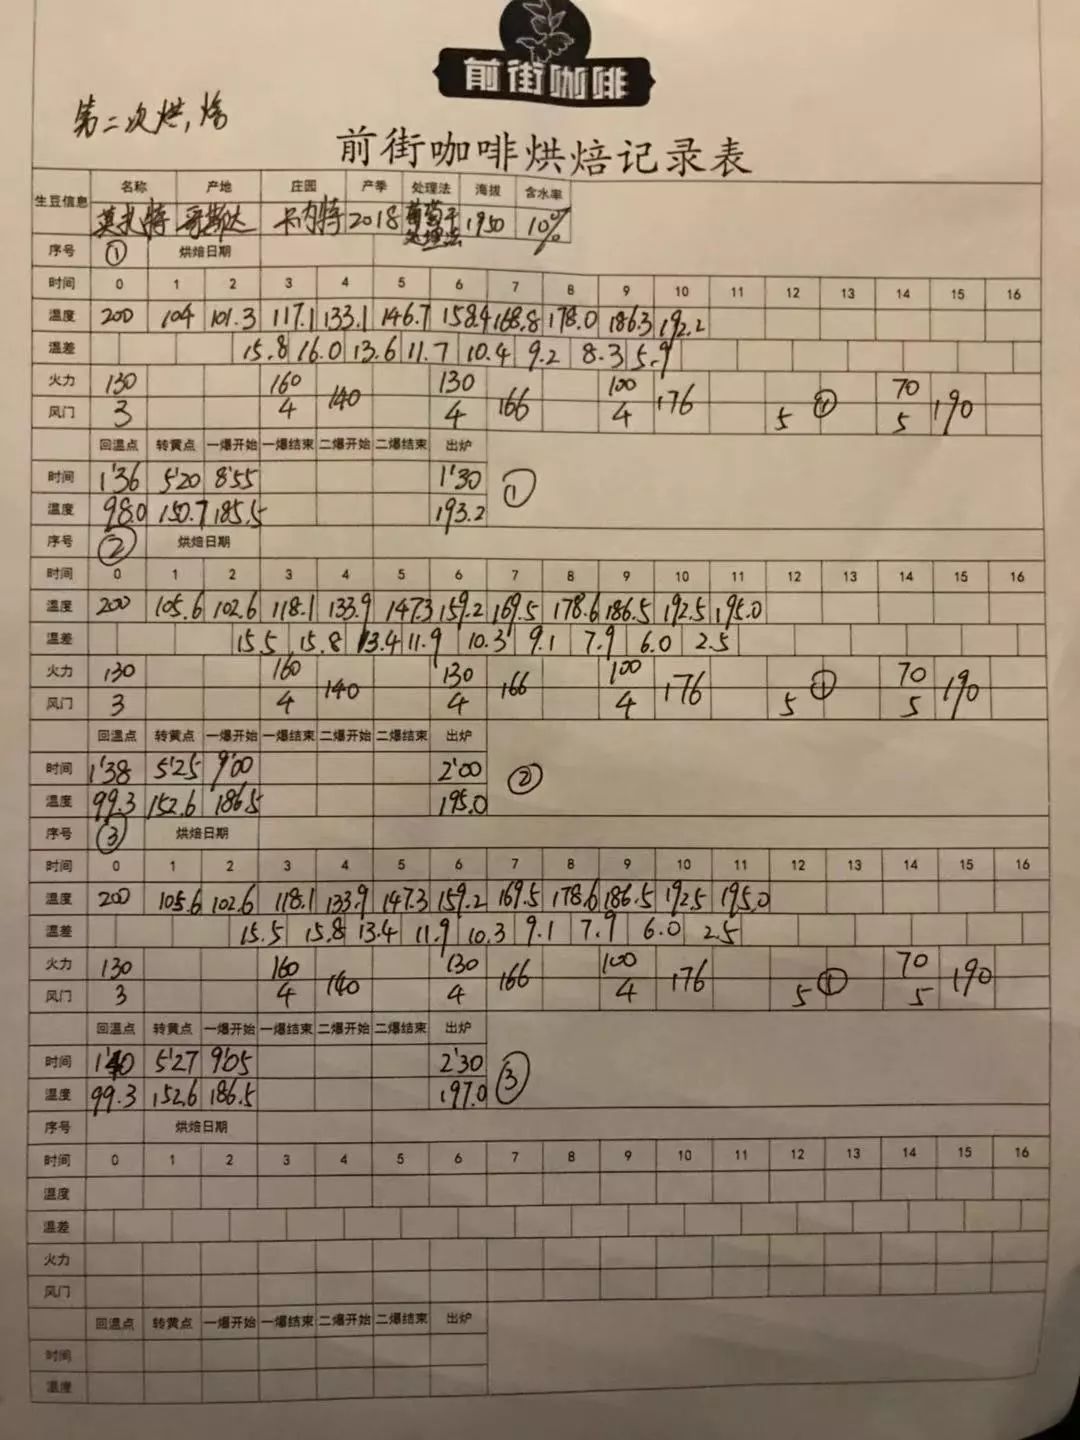 前街咖啡
第二次烘,焙
前街咖啡烘焙记录表
生豆信息 名称 产地 庄园 产季 处理法 海拔 含水率
莫扎特 哥斯达 卡内特 2018 葡萄干处理法 1950 10%
序号 ① 烘焙日期
时间 0 1 2 3 4 5 6 7 8 9 10 11 12 13 14 15 16
温度 200 104 101.3 117.1 133.1 146.7 158.4 168.8 178.0 186.3 192.2
温差 15.8 16.0 13.6 11.7 10.4 9.2 8.3 5.9
火力 130 160 140 130 166 100 176 ① 70 190
风门 3 4 4 4 5 5
回温点 转黄点 一爆开始 一爆结束 二爆开始 二爆结束 出炉
时间 1'36 5'20 8'55 1'30 ①
温度 98.0 150.7 185.5 193.2
序号 ② 烘焙日期
时间 0 1 2 3 4 5 6 7 8 9 10 11 12 13 14 15 16
温度 200 105.6 102.6 118.1 133.9 147.3 159.2 169.5 178.6 186.5 192.5 195.0
温差 15.5 15.8 13.4 11.9 10.3 9.1 7.9 6.0 2.5
火力 130 160 140 130 166 100 176 ① 70 190
风门 3 4 4 4 5 5
回温点 转黄点 一爆开始 一爆结束 二爆开始 二爆结束 出炉
时间 1'38 5'25 9'00 2'00 ②
温度 99.3 152.6 186.5 195.0
序号 ③ 烘焙日期
时间 0 1 2 3 4 5 6 7 8 9 10 11 12 13 14 15 16
温度 200 105.6 102.6 118.1 133.9 147.3 159.2 169.5 178.6 186.5 192.5 195.0
温差 15.5 15.8 13.4 11.9 10.3 9.1 7.9 6.0 2.5
火力 130 160 140 130 166 100 176 ① 70 190
风门 3 4 4 4 5 5
回温点 转黄点 一爆开始 一爆结束 二爆开始 二爆结束 出炉
时间 1'40 5'27 9'05 2'30 ③
温度 99.3 152.6 186.5 197.0
序号 烘焙日期
时间 0 1 2 3 4 5 6 7 8 9 10 11 12 13 14 15 16
温度
温差
火力
风门
回温点 转黄点 一爆开始 一爆结束 二爆开始 二爆结束 出炉
时间
温度